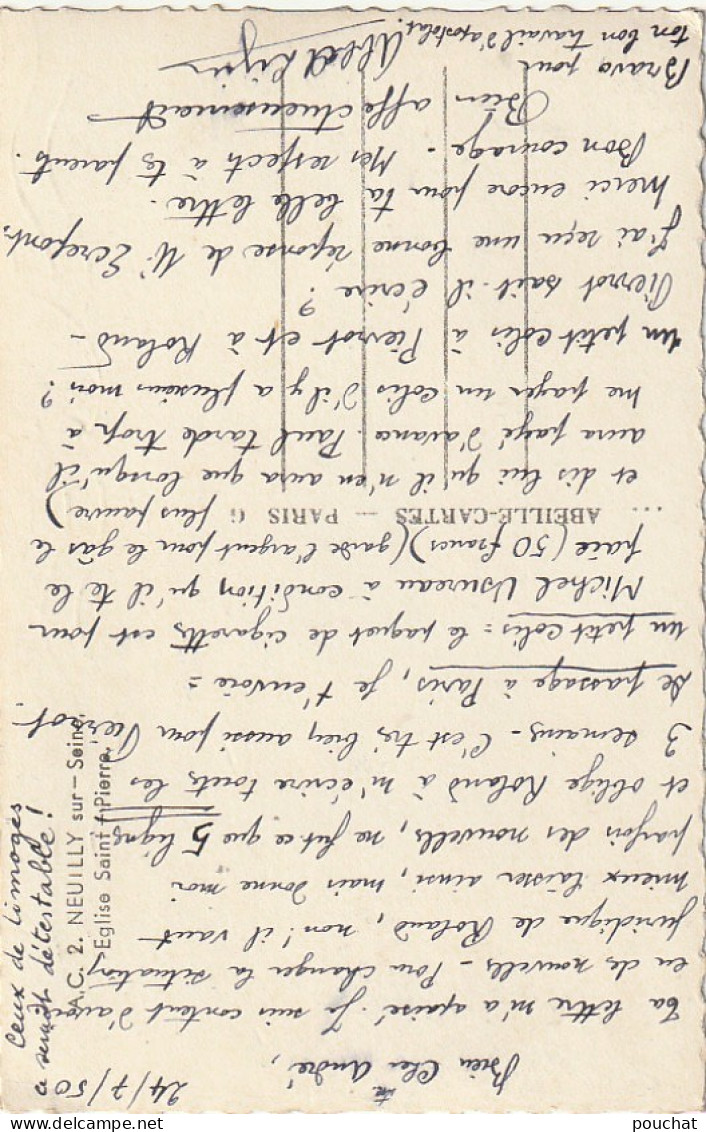 24/7/50
Bien Cher André,
Ta lettre m'a apaisé. Je suis content d'avoir
eu des nouvelles - Pour changer la situation
juridique de Roland, non! il vaut
mieux laisser ainsi, mais donne moi
parfois des nouvelles, ne fut-ce que 5 lignes
et oblige Roland à m'écrire toutes les
3 semaines - C'est très bien aussi pour Pierrot.
De passage à Paris, je t'envoie =
un petit colis = le paquet de cigarettes est pour
Michel Usureau à condition qu'il te le
paie (50 francs) (garde l'argent pour le gâs le
plus pauvre)
et dis lui qu'il n'en aura que lorsqu'il
aura payé d'avance. Paul tarde trop à
me payer un colis d'il y a plusieurs mois?
un petit colis à Pierrot et à Roland -
Pierrot sait-il écrire?
J'ai reçu une bonne réponse de Mr
Merci encore pour ta belle lettre.
Bon courage - Mes respects à tes parents.
Bien affectueusement
Bravo pour
ton bon travail d'apostolat.
Ceux de Limoges
ce serait détestable!
A.C. 2. NEUILLY sur - Seine.
Eglise Saint - Pierre.
ABEILLE-CARTES — PARIS 6
pouchat